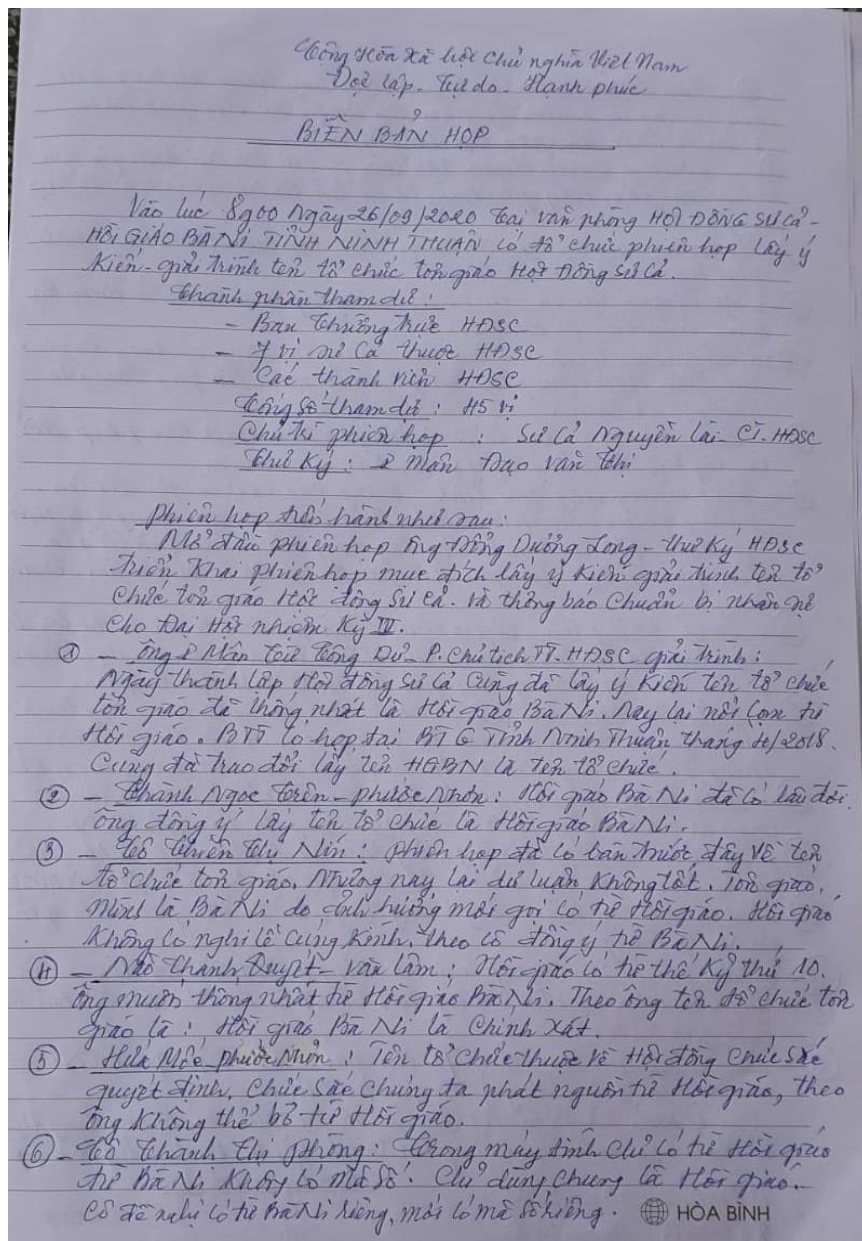 Cộng Hòa Xã hội Chủ nghĩa Việt Nam
Độc lập - Tự do - Hạnh phúc
BIÊN BẢN HỌP
Vào lúc 8g00 Ngày 26/09/2020 tại văn phòng HỘI ĐỒNG SƯ CẢ -
HỒI GIÁO BÀ NI TỈNH NINH THUẬN có tổ chức phiên họp lấy ý
kiến - giải trình tên tổ chức tôn giáo Hội Đồng Sư Cả.
Thành phần tham dự :
- Ban Thường trực HĐSC
- 7 vị sư Cả thuộc HĐSC
- Các thành viên HĐSC
Tổng số tham dự : 45 vị
Chủ trì phiên họp : Sư Cả Nguyễn Lai - CT - HĐSC
Thư Ký : Mân Đạo Văn Thị
Phiên họp tiến hành như sau :
Mở đầu phiên họp ông Đổng Dưỡng Long - Thư Ký HĐSC
triển khai phiên họp mục đích lấy ý kiến giải trình tên tổ
chức tôn giáo Hội đồng Sư Cả. Và thông báo chuẩn bị nhân sự
cho Đại Hội nhiệm kỳ IV.
① - Ông Mân Từ Công Dư - P. Chủ tịch TT. HĐSC giải trình :
Ngày thành lập Hội đồng Sư Cả cũng đã lấy ý kiến tên tổ chức
tôn giáo đã thống nhất là Hồi giáo Bà Ni. Nay lại nổi cộm từ
Hồi giáo. BTT có họp tại BTG Tỉnh Ninh Thuận tháng 4/2018.
Cũng đã trao đổi lấy tên HGBN là tên tổ chức.
② - Thành Ngọc Trên - Phước Nhơn : Hồi giáo Bà Ni đã có lâu đời.
Ông đồng ý lấy tên tổ chức là Hồi giáo Bà Ni.
③ - Cô Thiên Thị Nín : Phiên họp đã có bàn trước đây về tên
tổ chức tôn giáo. Nhưng nay lại dư luận không tốt. Tôn giáo
mình là Bà Ni do ảnh hưởng mới gọi có từ Hồi giáo. Hồi giáo
không có nghi lễ cúng kính, theo cô đồng ý từ Bà Ni.
④ - Não Thanh Quyết - Văn Lâm : Hồi giáo có từ thế kỷ thứ 10.
Ông muốn thống nhất từ Hồi giáo Bà Ni. Theo ông tên tổ chức tôn
giáo là : Hồi giáo Bà Ni là chính xát.
⑤ - Hứa Môé Phước Nhơn : Tên tổ chức thuộc về Hội đồng chức sắc
quyết định. Chức sắc chúng ta phát nguồn từ Hồi giáo, theo
ông không thể bỏ từ Hồi giáo.
⑥ - Cô Thành Thị Phòng : Trong máy tính chỉ có từ Hồi giáo
từ Bà Ni không có mã số. Chỉ dùng chung là Hồi giáo.
Cô đề nghị có từ Bà Ni riêng, mới có mã số riêng. HÒA BÌNH